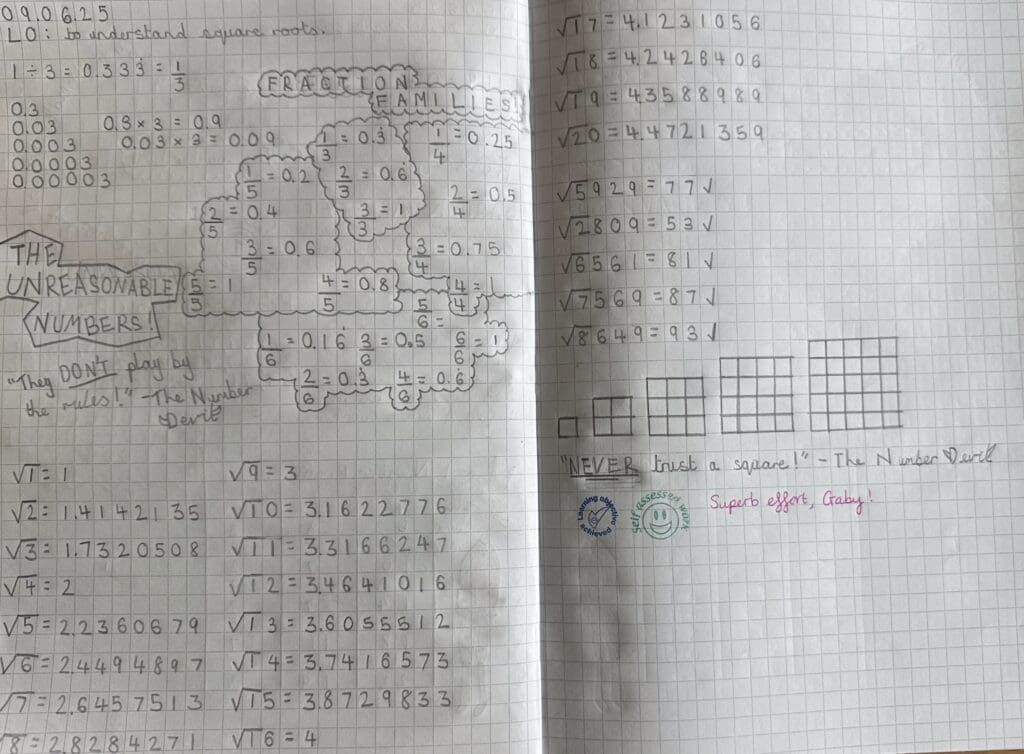 09.06.25
LO: to understand square roots.
1 ÷ 3 = 0.333̇ = 1/3
0.3
0.03 0.3 × 3 = 0.9
0.003 0.03 × 3 = 0.09
0.0003
0.00003
FRACTION
FAMILIES!
1/3 = 0.3̇
2/3 = 0.6̇
3/3 = 1
1/4 = 0.25
2/4 = 0.5
3/4 = 0.75
4/4 = 1
1/5 = 0.2
2/5 = 0.4
3/5 = 0.6
4/5 = 0.8
5/5 = 1
1/6 = 0.16̇
2/6 = 0.3̇
3/6 = 0.5
4/6 = 0.6̇
5/6 =
6/6 = 1
THE
UNREASONABLE
NUMBERS!
"They DON'T play by
the rules!" - The Number
Devil
√1 = 1
√2 = 1.4142135
√3 = 1.7320508
√4 = 2
√5 = 2.2360679
√6 = 2.4494897
√7 = 2.6457513
√8 = 2.8284271
√9 = 3
√10 = 3.1622776
√11 = 3.3166247
√12 = 3.4641016
√13 = 3.6055512
√14 = 3.7416573
√15 = 3.8729833
√16 = 4
√17 = 4.1231056
√18 = 4.2426406
√19 = 4.3588989
√20 = 4.4721359
√5929 = 77 ✓
√2809 = 53 ✓
√6561 = 81 ✓
√7569 = 87 ✓
√8649 = 93 ✓
"NEVER trust a square!" - The Number Devil
Learning objective achieved
Self assessed work
Superb effort, Gaby!